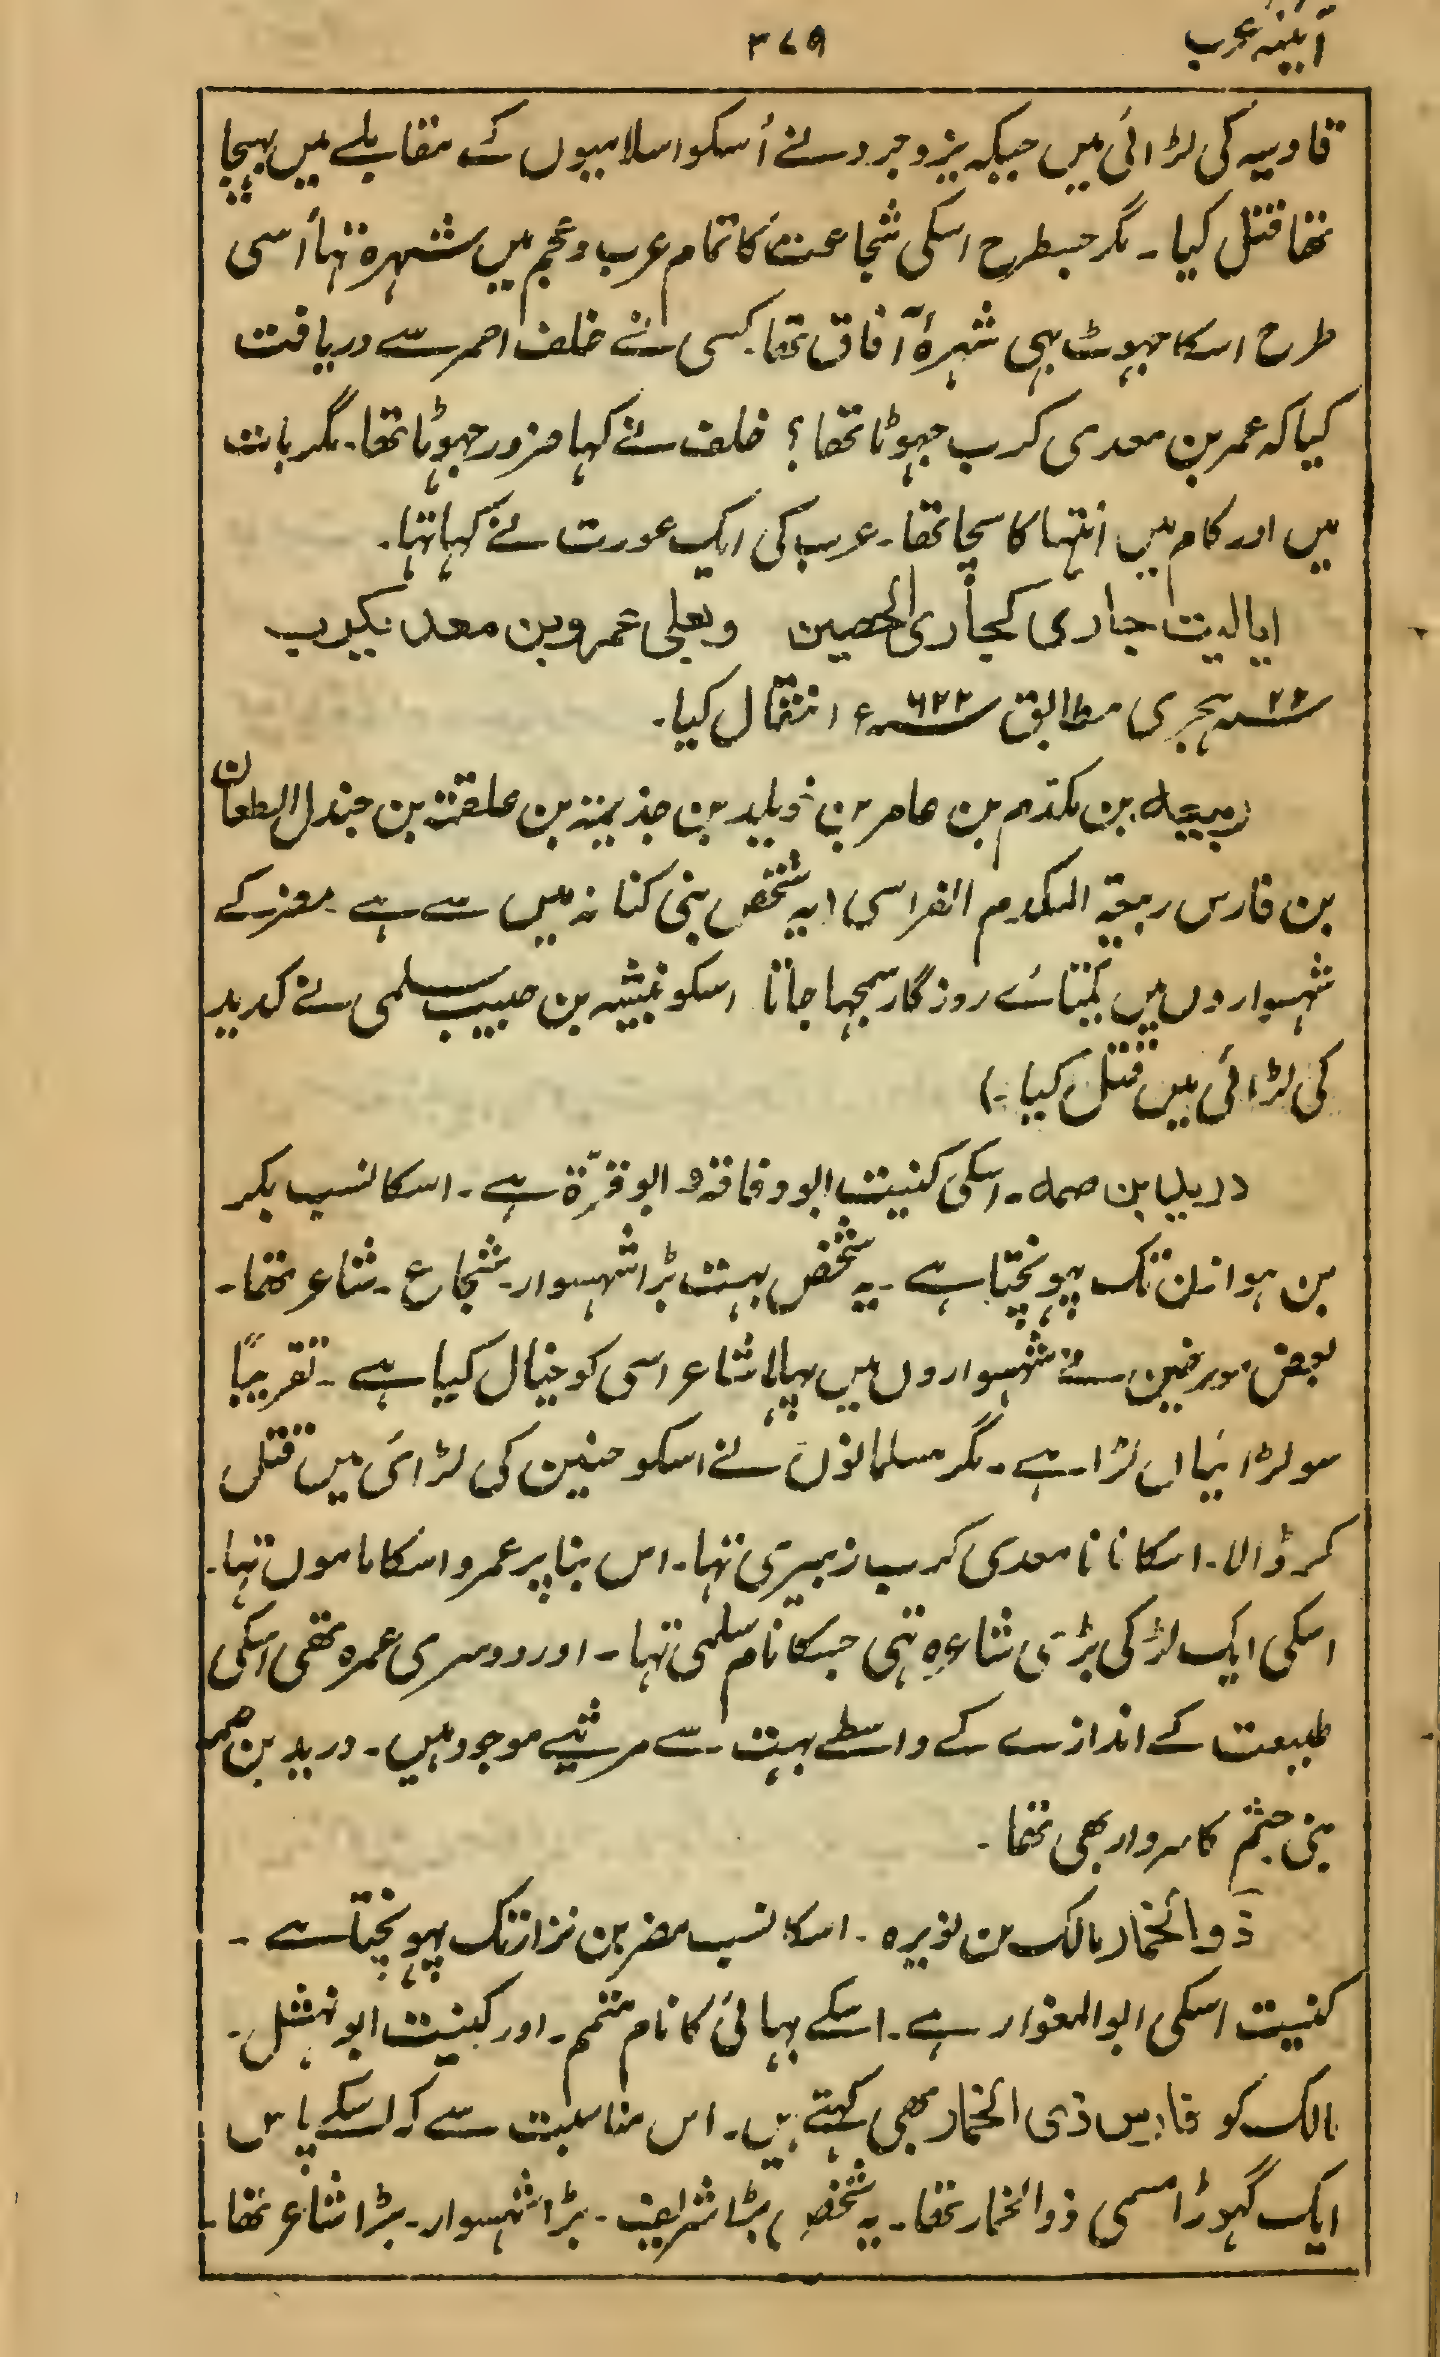 آئینہ عرب
۳۷۹
قادسیہ کی لڑائی میں جبکہ یزدجرد نے اُسکو اسلامیوں کے مقابلے میں بہیجا
تھا قتل کیا۔ مگر جسطرح اسکی شجاعت کا تمام عرب و عجم میں شہرہ تہا اُسی
طرح اسکا جہوٹ بہی شہرۂ آفاق تھا۔ کسی نے خلف احمر سے دریافت
کیا کہ عمر بن معدی کرب جہوٹا تھا؟ خلف نے کہا ضرور جہوٹا تھا۔ مگر بات
میں اور کام میں انتہا کا سچا تھا۔ عرب کی ایک عورت نے کہا تہا۔
ایالیت جاری کجاری الحصین وبعلی عمرو بن معدیکرب
۲۲ سنہ ہجری مطابق ۶۲۲ سنہ ء انتقال کیا۔
ربیعہ بن مکدم بن عامر بن خویلد بن جذیمتہ بن علقمتہ بن جندل الطعان
بن فارس ربیعۃ المکدم الفراسی (یہ شخص بنی کنانہ میں سے ہے۔ مضر کے
شہسواروں میں یکتائے روزگار سمجہا جاتا اسکو نبیشہ بن حبیب سلمی نے کدید
کی لڑائی میں قتل کیا۔)
درید بن صمہ۔ اسکی کنیت ابو دفافتہ و ابو قرّۃ ہے۔ اسکا نسب بکر
بن ہوازن تک پہونچتا ہے۔ یہ شخص بہت بڑا شہسوار۔ شجاع۔ شاعر تھا۔
بعض مورخین نے شہسواروں میں پہلا شاعر اسی کو خیال کیا ہے۔ تقریباً
سو لڑائیاں لڑا ہے۔ مگر مسلمانوں نے اسکو حنین کی لڑائی میں قتل
کر ڈالا۔ اسکا نانا معدی کرب زبیری تہا۔ اس بنا پر عمرو اسکا ماموں تہا۔
اسکی ایک لڑکی بڑی شاعرہ تہی جسکا نام سلمی تہا۔ اور دوسری عمرہ تھی اسکی
طبیعت کے اندازے کے واسطے بہت سے مرثیے موجود ہیں۔ درید بن صمہ
بنی جثم کا سردار بھی تھا۔
ذوالخمار مالک بن نویرہ۔ اسکا نسب مضر بن نزار تک پہونچتا ہے۔
کنیت اسکی ابو المغوار ہے۔ اسکے بہائی کا نام متمم۔ اور کنیت ابو نہشل۔
مالک کو فارس ذی الخمار بھی کہتے ہیں۔ اس مناسبت سے کہ اسکے پاس
ایک گہوڑا مسمی ذوالخمار تھا۔ یہ شخص بڑا شریف۔ بڑا شہسوار۔ بڑا شاعر تھا۔